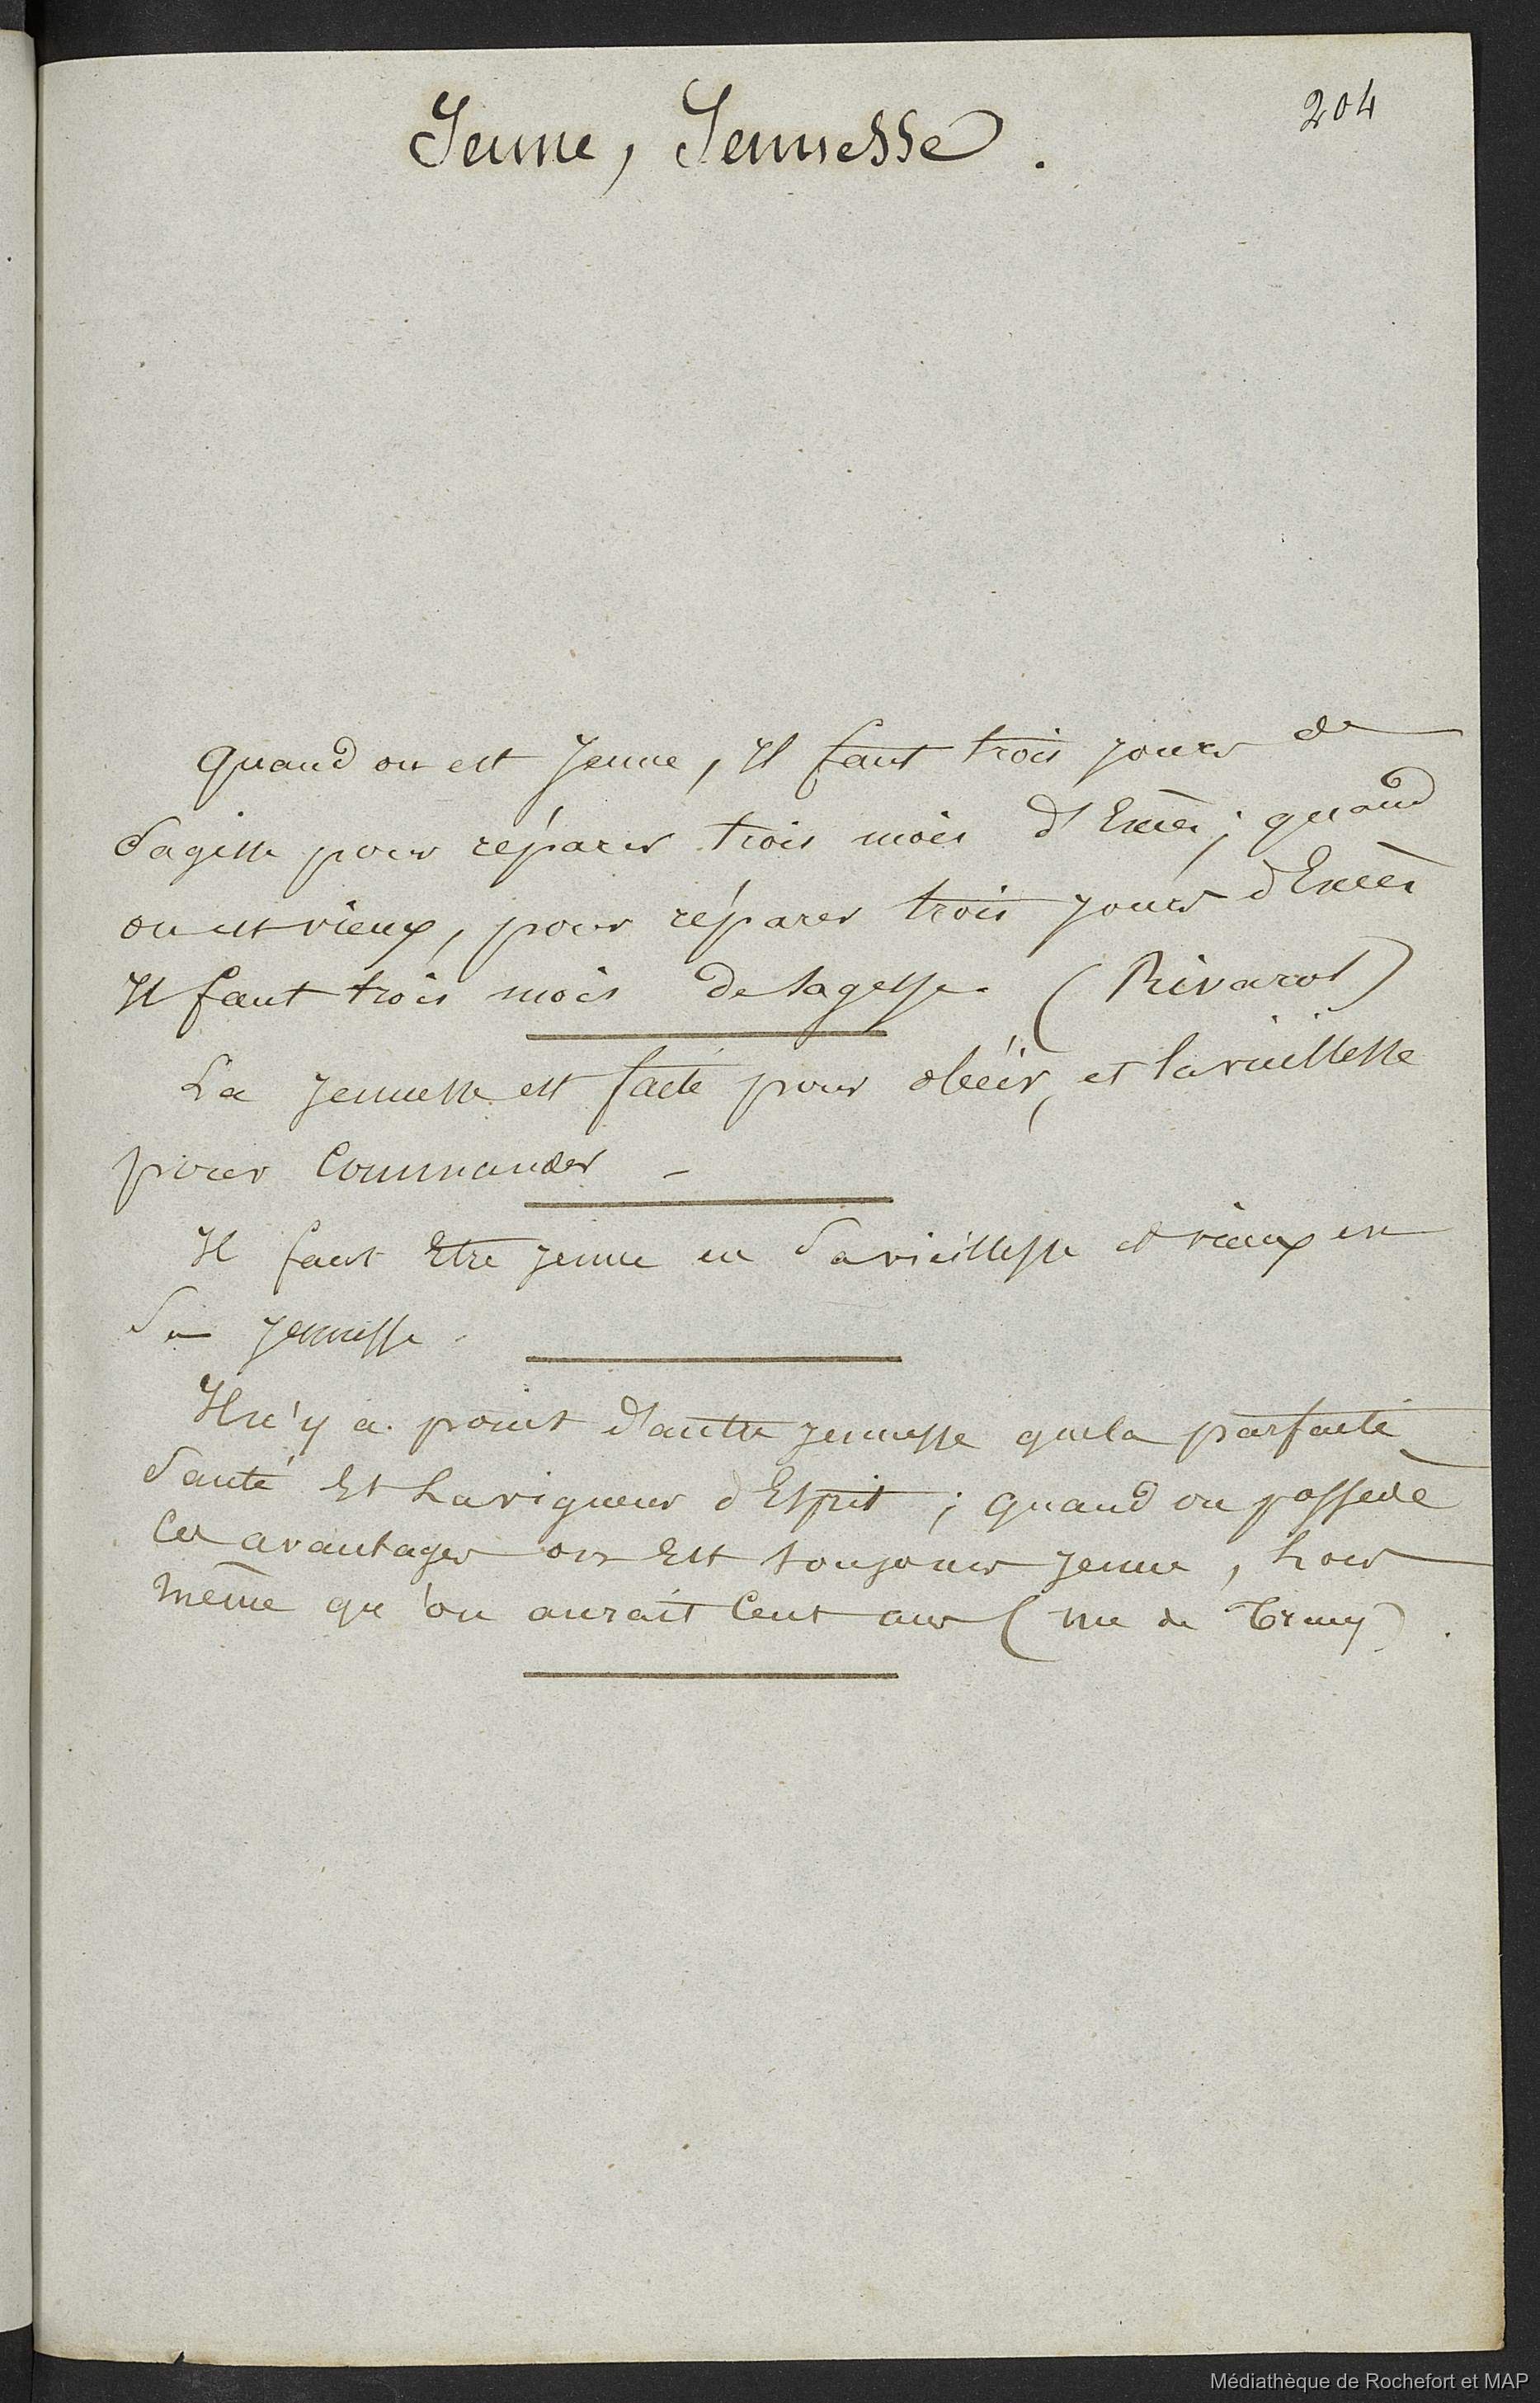 204
Jeune, Jeunesse.
Quand on est Jeune, Il faut trois jours de
Sagesse pour réparer trois mois d'Excès ; quand
on est vieux, pour réparer trois jours d'Excès
Il faut trois mois de Sagesse. (Rivarol)
La jeunesse est faite pour obéir, et la vieillesse
pour Commander -
Il faut Etre jeune en Sa vieillesse et vieux en
Sa jeunesse.
Il n'y a point d'autre jeunesse que la parfaite
Santé Et La vigueur d'Esprit ; quand on possède
Ces avantages on Est toujours jeune, Lors
même qu'on aurait Cent ans (Me de Tracy).
Médiathèque de Rochefort et MAP